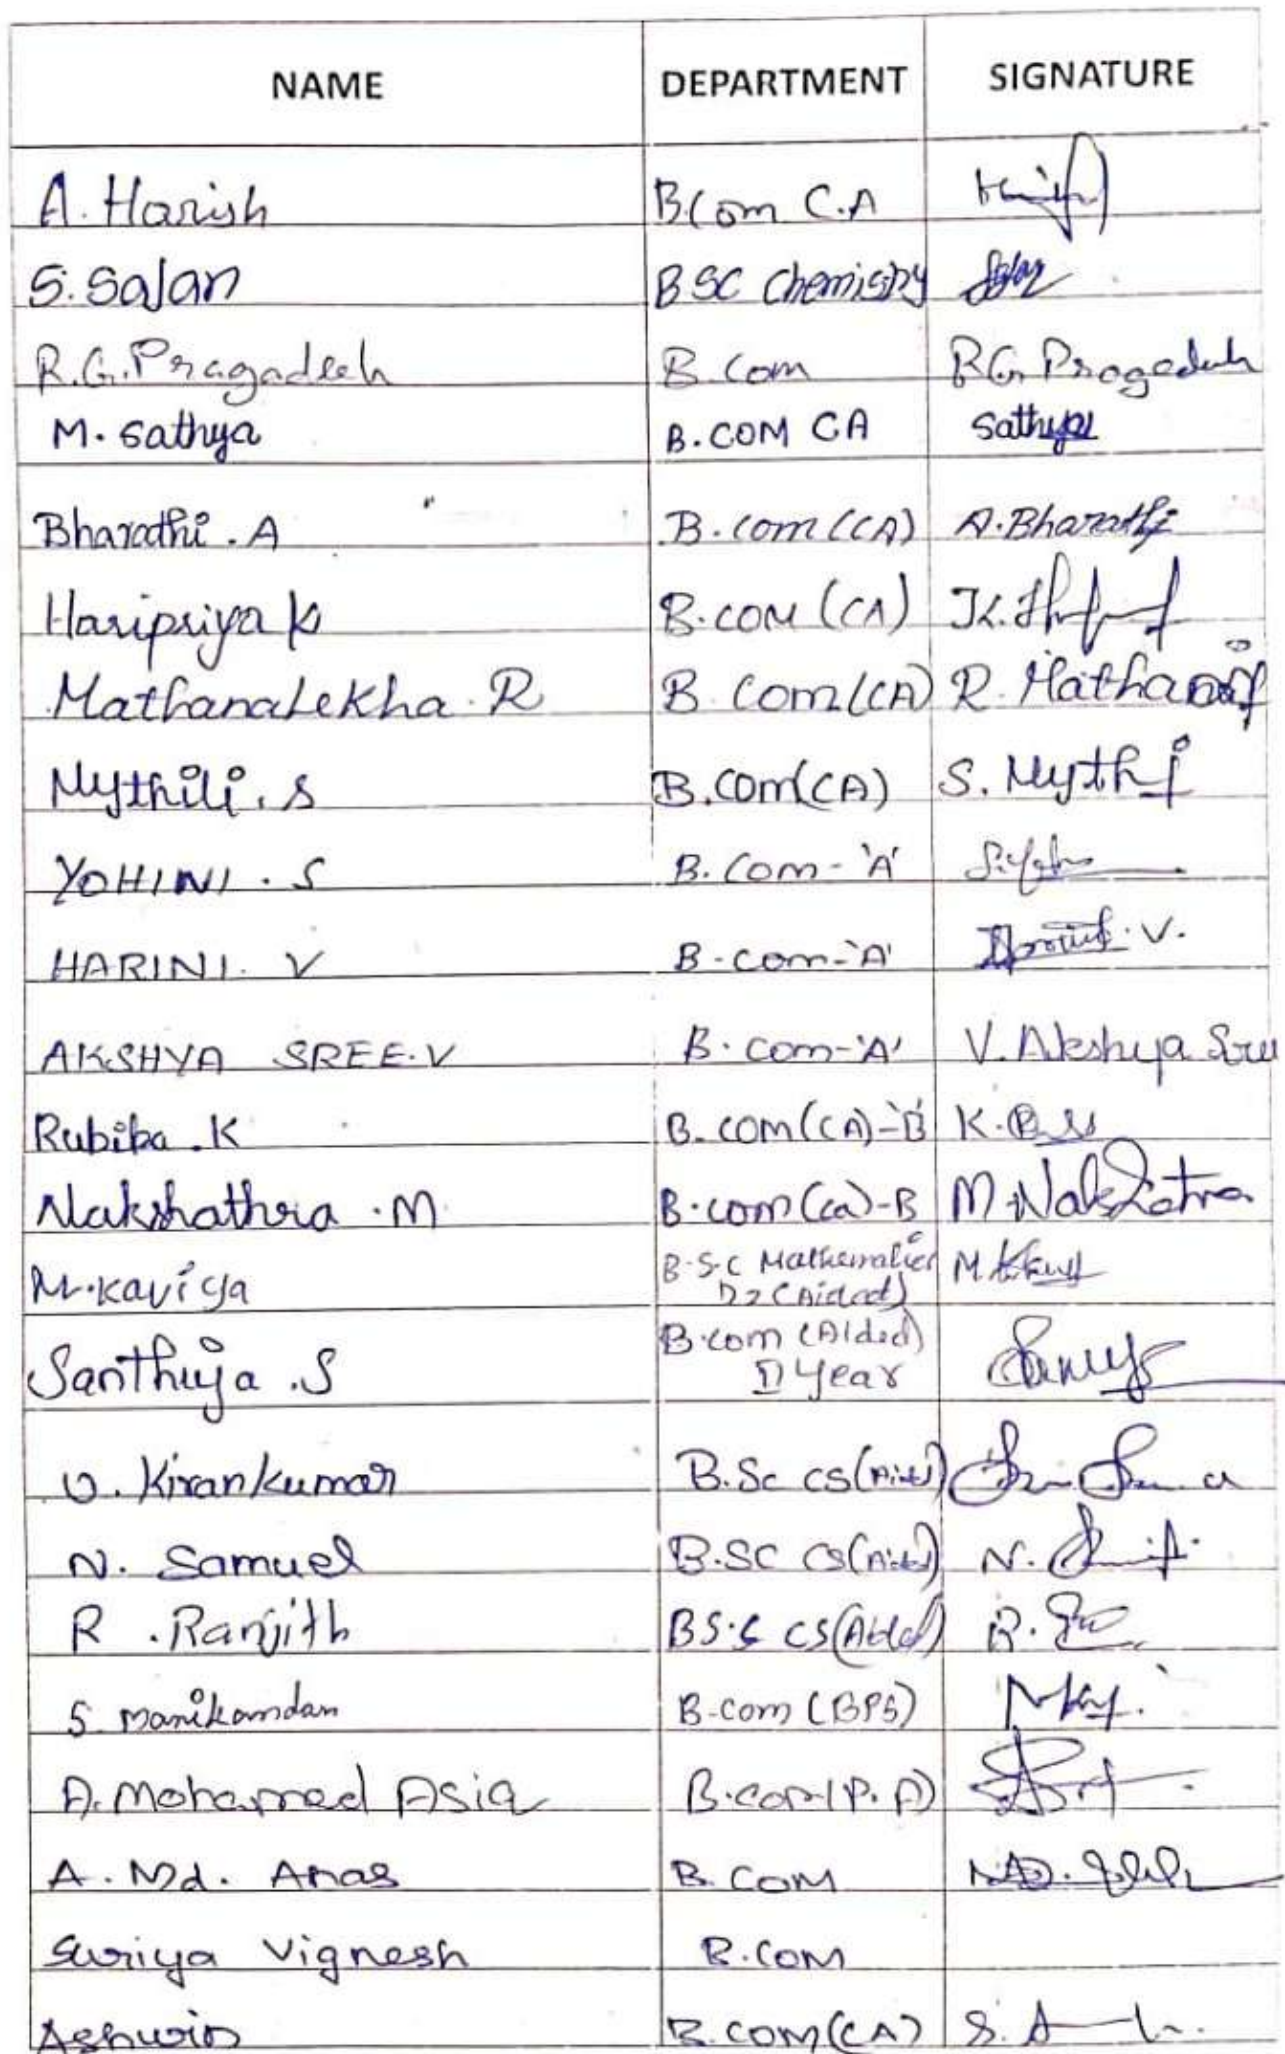 NAME DEPARTMENT SIGNATURE
A. Harish B.Com C.A
S. Sajan BSC Chemistry
R.G. Pragadeeh B.Com R.G. Pragadeeh
M. Sathya B.COM CA Sathya
Bharathi . A B.com (CA) A.Bharathi
Haripriya K B.COM (CA)
Mathanalekha . R B. Com (CA) R. Mathana
Mythili . S B.Com(CA) S. Myth
YOHINI . S B.Com - 'A'
HARINI . V B.com - 'A' V.
AKSHYA SREE.V B.com-'A' V. Akshya Sree
Rubika . K B.com(CA)-'B' K.
Nakshathra . M B.com(ca)-B M.Nakshatra
M.Kaviya B.S.C Mathematics (Aided) M
Santhiya . S B.com (Aided)
II year
U. Kirankumar B.Sc CS(Aided)
N. Samuel B.SC CS(Aided) N.
R . Ranjith BS.C CS(Aided) R.
S. Manikamdan B.com (BPS)
A. Mohamed Asia B.com(P.A)
A. Md. Anas B.COM
Suriya Vignesh B.COM
Ashwin B.COM(CA) S. A